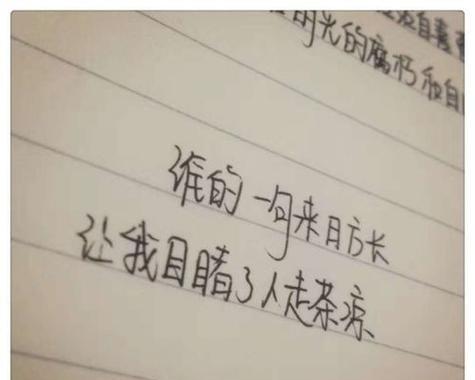 明光的腐朽和自
谁的一句来日方长
让我目睹了人走茶凉